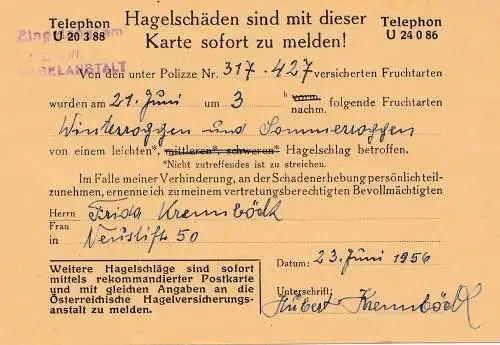 Telephon
U 20 3 88
Hagelschäden sind mit dieser
Karte sofort zu melden!
Telephon
U 24 0 86
HAGELANSTALT
Von den unter Polizze Nr. 317.427 versicherten Fruchtarten
wurden am 21. Juni um 3 h vorm. nachm. folgende Fruchtarten
Winterroggen und Sommerroggen
von einem leichten*, mittleren*, schweren* Hagelschlag betroffen.
*Nicht zutreffendes ist zu streichen.
Im Falle meiner Verhinderung, an der Schadenerhebung persönlich teil-
zunehmen, ernenne ich zu meinem vertretungsberechtigten Bevollmächtigten
Herrn Frida Krennböck
Frau
in Neustift 50
Datum: 23. Juni 1956
Weitere Hagelschläge sind sofort
mittels rekommandierter Postkarte
und mit gleichen Angaben an die
Österreichische Hagelversicherungs-
anstalt zu melden.
Unterschrift:
Hubert Krennböck